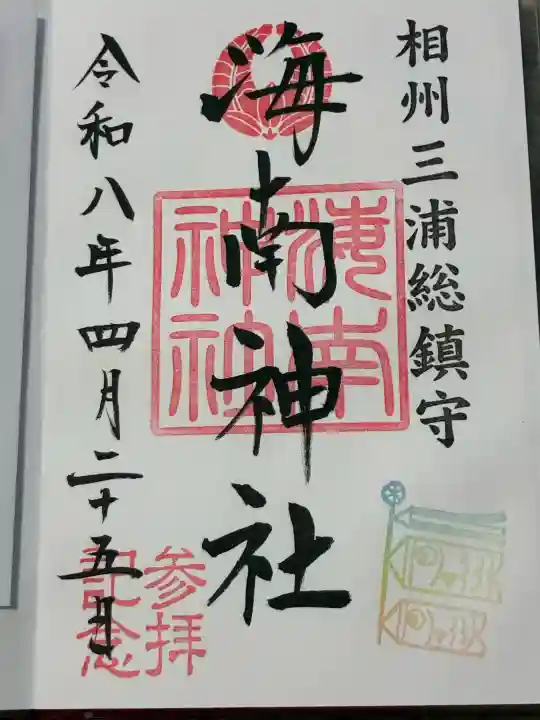 相州三浦総鎮守
海南神社
海南神社
令和八年四月二十五日
参拝
記念